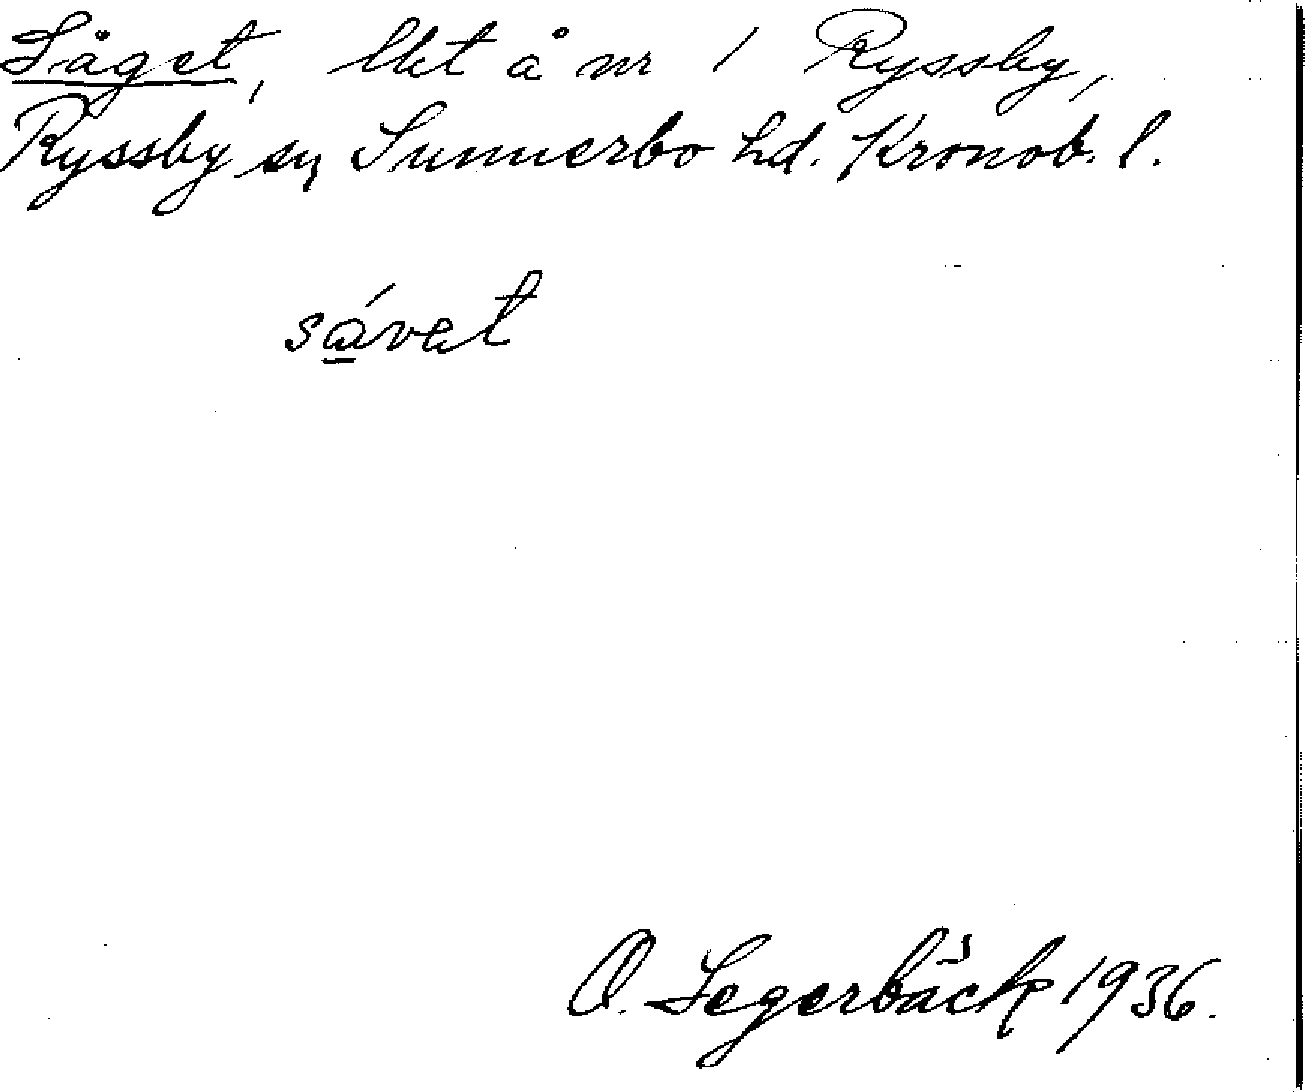 Såget, lht å nr 1 Ryssby,
Ryssby sn, Sunnerbo hd. Kronob. l.
sá̲vət
O. Segerbäck 1936.